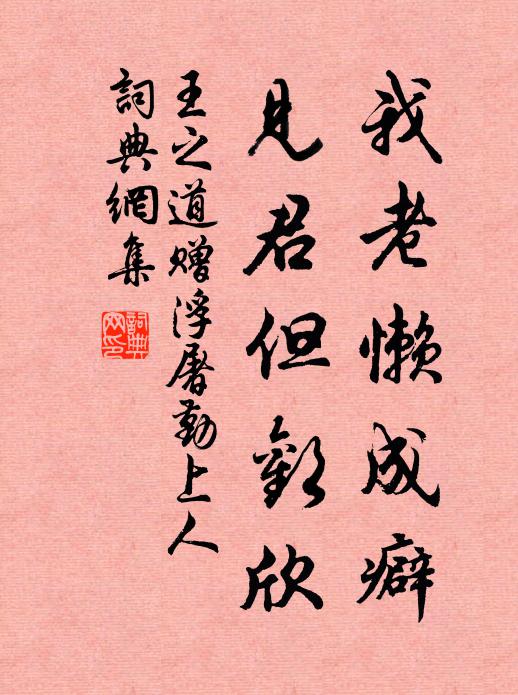 我老懒成癖
见君但歡欣
王之道赠浮屠勤上人
詞典網集
詞典网印